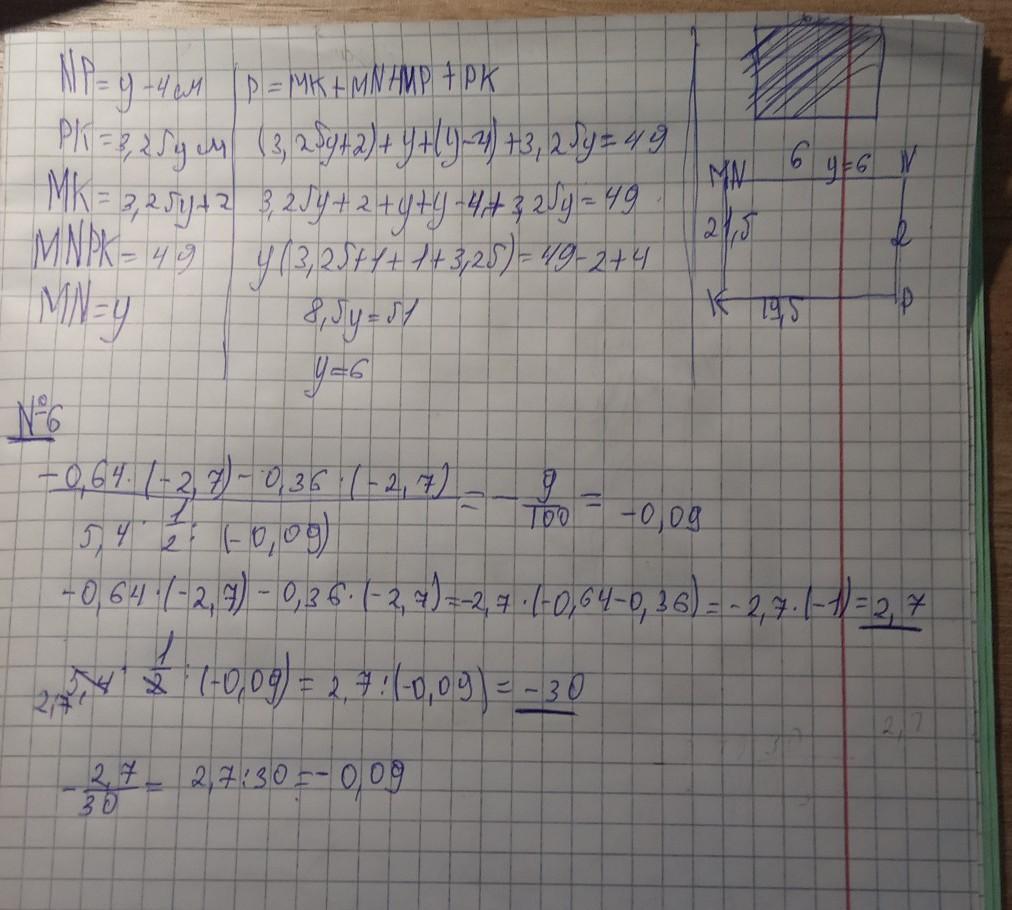 NP = y - 4 см
PK = 3,25y см
MK = 3,25y + 2
MNPK = 49
MN = y
P = MK + MN + NP + PK
(3,25y+2) + y + (y-4) + 3,25y = 49
3,25y + 2 + y + y - 4 + 3,25y = 49
y(3,25+1+1+3,25) = 49-2+4
8,5y = 51
y = 6
MN 6 y=6 N
21,5 2
K 19,5 P
№6
-0,64·(-2,7) - 0,36·(-2,7) = - 9/100 = -0,09
5,4 · 1/2 : (-0,09)
-0,64·(-2,7) - 0,36·(-2,7) = -2,7·(-0,64-0,36) = -2,7·(-1) = 2,7
2,7 5,4 · 1/2 : (-0,09) = 2,7:(-0,09) = -30
- 2,7/30 = 2,7:30 = -0,09